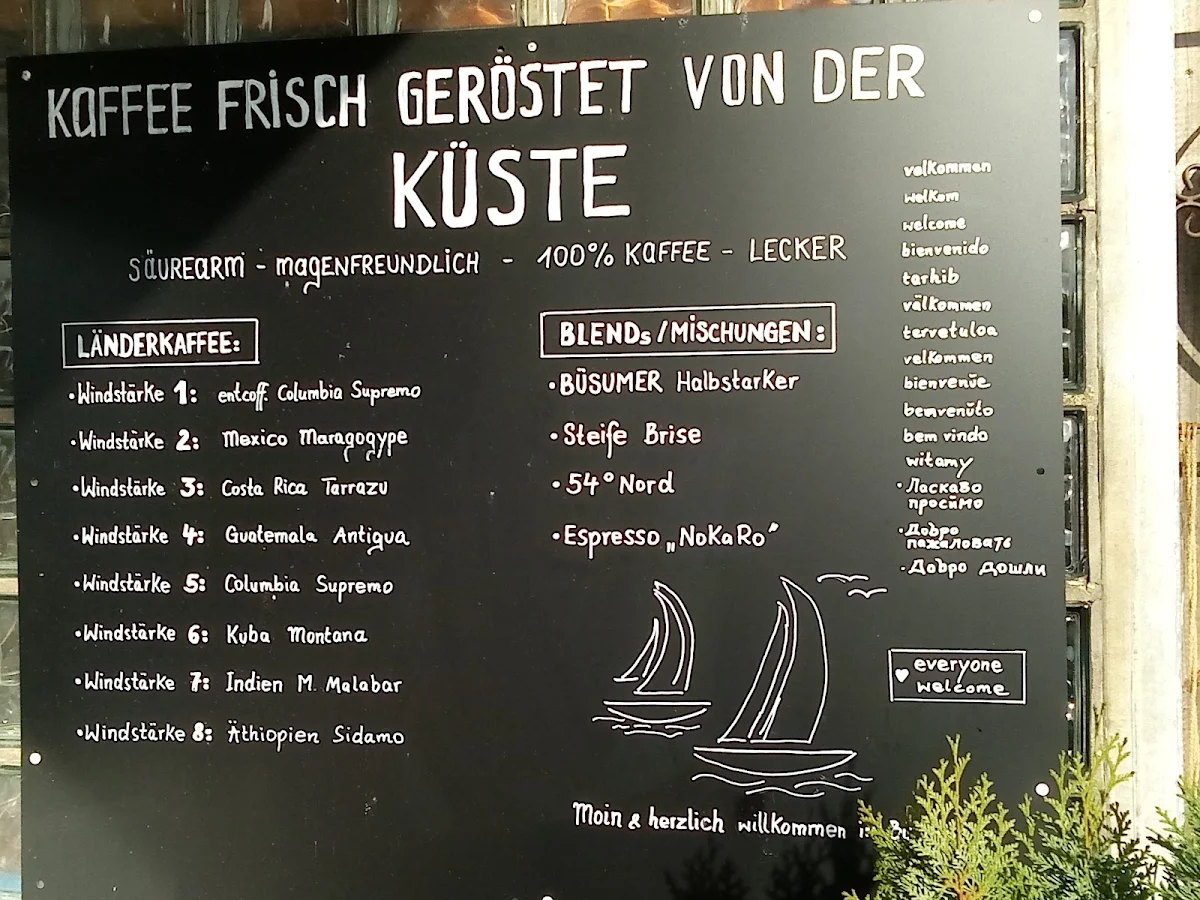 KAFFEE FRISCH GERÖSTET VON DER
KÜSTE
SÄUREARM - MAGENFREUNDLICH - 100% KAFFEE - LECKER
LÄNDERKAFFEE:
•Windstärke 1: entcoff. Columbia Supremo
•Windstärke 2: Mexico Maragogype
•Windstärke 3: Costa Rica Tarrazu
•Windstärke 4: Guatemala Antigua
•Windstärke 5: Columbia Supremo
•Windstärke 6: Kuba Montana
•Windstärke 7: Indien M. Malabar
•Windstärke 8: Äthiopien Sidamo
BLENDS/MISCHUNGEN:
•BÜSUMER Halbstarker
•Steife Brise
•54° Nord
•Espresso „NoKaRo"
velkommen
welkom
welcome
bienvenido
tarhib
välkommen
tervetuloa
velkommen
bienvenue
benvenuto
bem vindo
witamy
•Ласкаво
просимо
•Добро
пожаловать
•Добро дошли
♥ everyone
welcome
Moin & herzlich willkommen